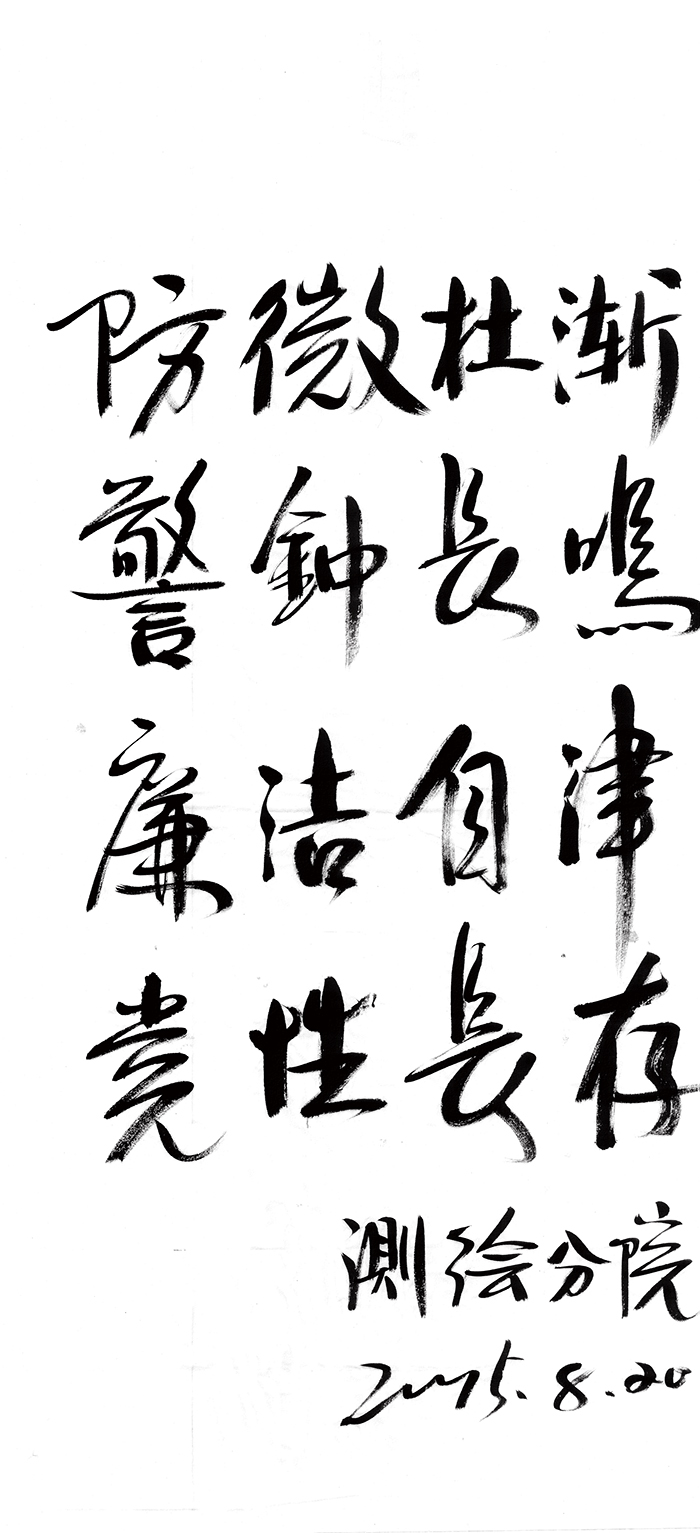 防微杜渐
警钟長鸣
廉洁自津
党性長存
测绘分院
2015.8.20